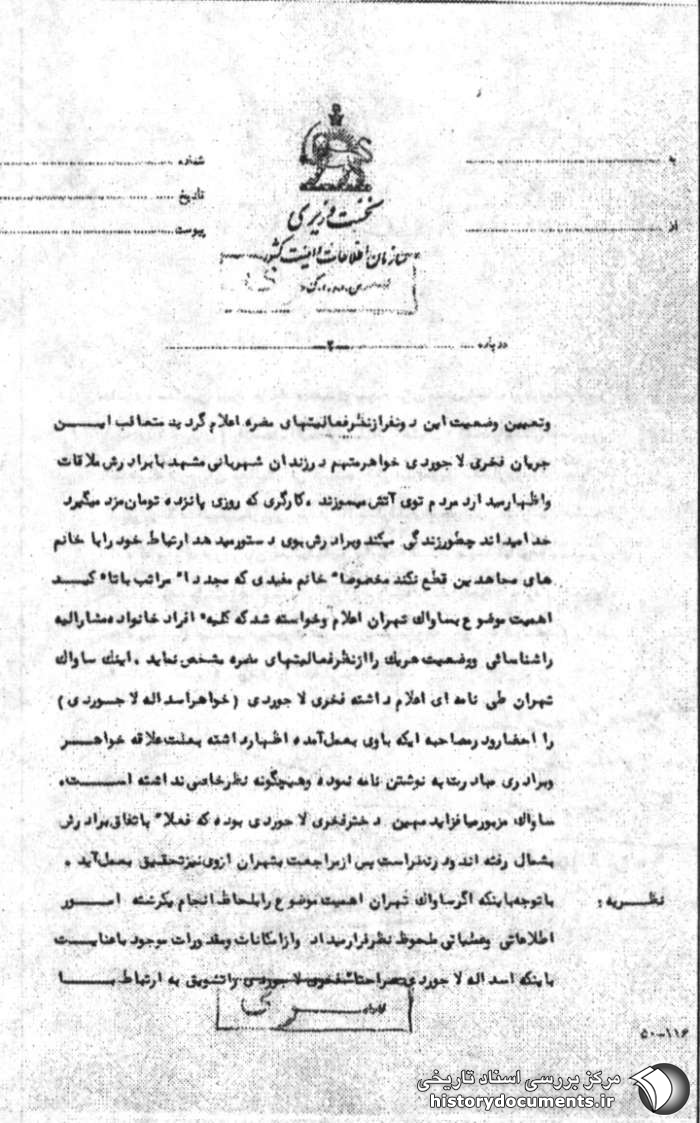 به
شماره
تاریخ
از
پیوست
نخست وزیری
سازمان اطلاعات و امنیت کشور
درباره
-۲-
وتعیین وضعیت این دونفرازنظرفعالیتهای مضره اعلام گردید متعاقب ایـــن
جریان فخری لاجوردی خواهرمتهم درزندان شهربانی مشهد بابرادرش ملاقات
واظهارمیدارد مردم توی آتش میسوزند ،کارگری که روزی پانزده تومان مزد میگیرد
خدامیداند چطورزندگی میکند وبرادرش بوی دستورمیدهد ارتباط خودرابا خانم
های مجاهدین قطع نکند مخصوصا" خانم مفیدی که مجددا" مراتب باتاکیــد
اهمیت موضوع بساواک تهران اعلام وخواسته شدکه کلیه افراد خانواده مشارالیه
راشناسائی ووضعیت هریک راازنظرفعالیتهای مضره مشخص نماید ،اینک ساواک
تهران طی نامه ای اعلام داشته فخری لاجوردی (خواهراسداله لاجــوردی)
را احضارودرمصاحبه ایکه باوی بعمل آمده اظهارداشته بعلت علاقه خواهــر
وبرادری مبادرت به نوشتن نامه نموده وهیچگونه نظرخاصی نداشته اســـت،
ساواک مزبورمیافزاید مهین دخترفخری لاجوردی بوده که فعلا" باتفاق برادرش
بشمال رفته اند ودرنظراست پس ازمراجعت بتهران ازوی نیزتحقیق بعمل آید .
نظــریه :
باتوجه باینکه اگرساواک تهران اهمیت موضوع رابلحاظ انجام یکرشته امــور
اطلاعاتی وعملیاتی ملحوظ نظرقرارمیداد وازامکانات ومقدورات موجود باعنایت
باینکه اسداله لاجوردی صراحتا" فخری لاجوردی راتشویق به ارتباط بـــا
۵۰-۱۱۶
مرکز بررسی اسناد تاریخی
historydocuments.ir